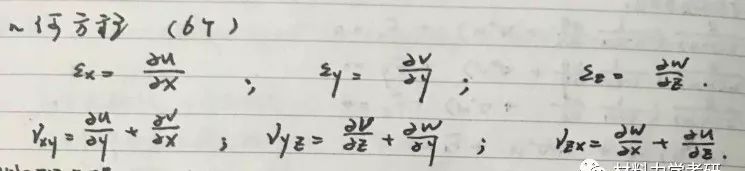 几何方程 (6个)
εx = ∂u/∂x ; εy = ∂v/∂y ; εz = ∂w/∂z .
γxy = ∂u/∂y + ∂v/∂x ; γyz = ∂v/∂z + ∂w/∂y ; γzx = ∂w/∂x + ∂u/∂z .
材料力学考研